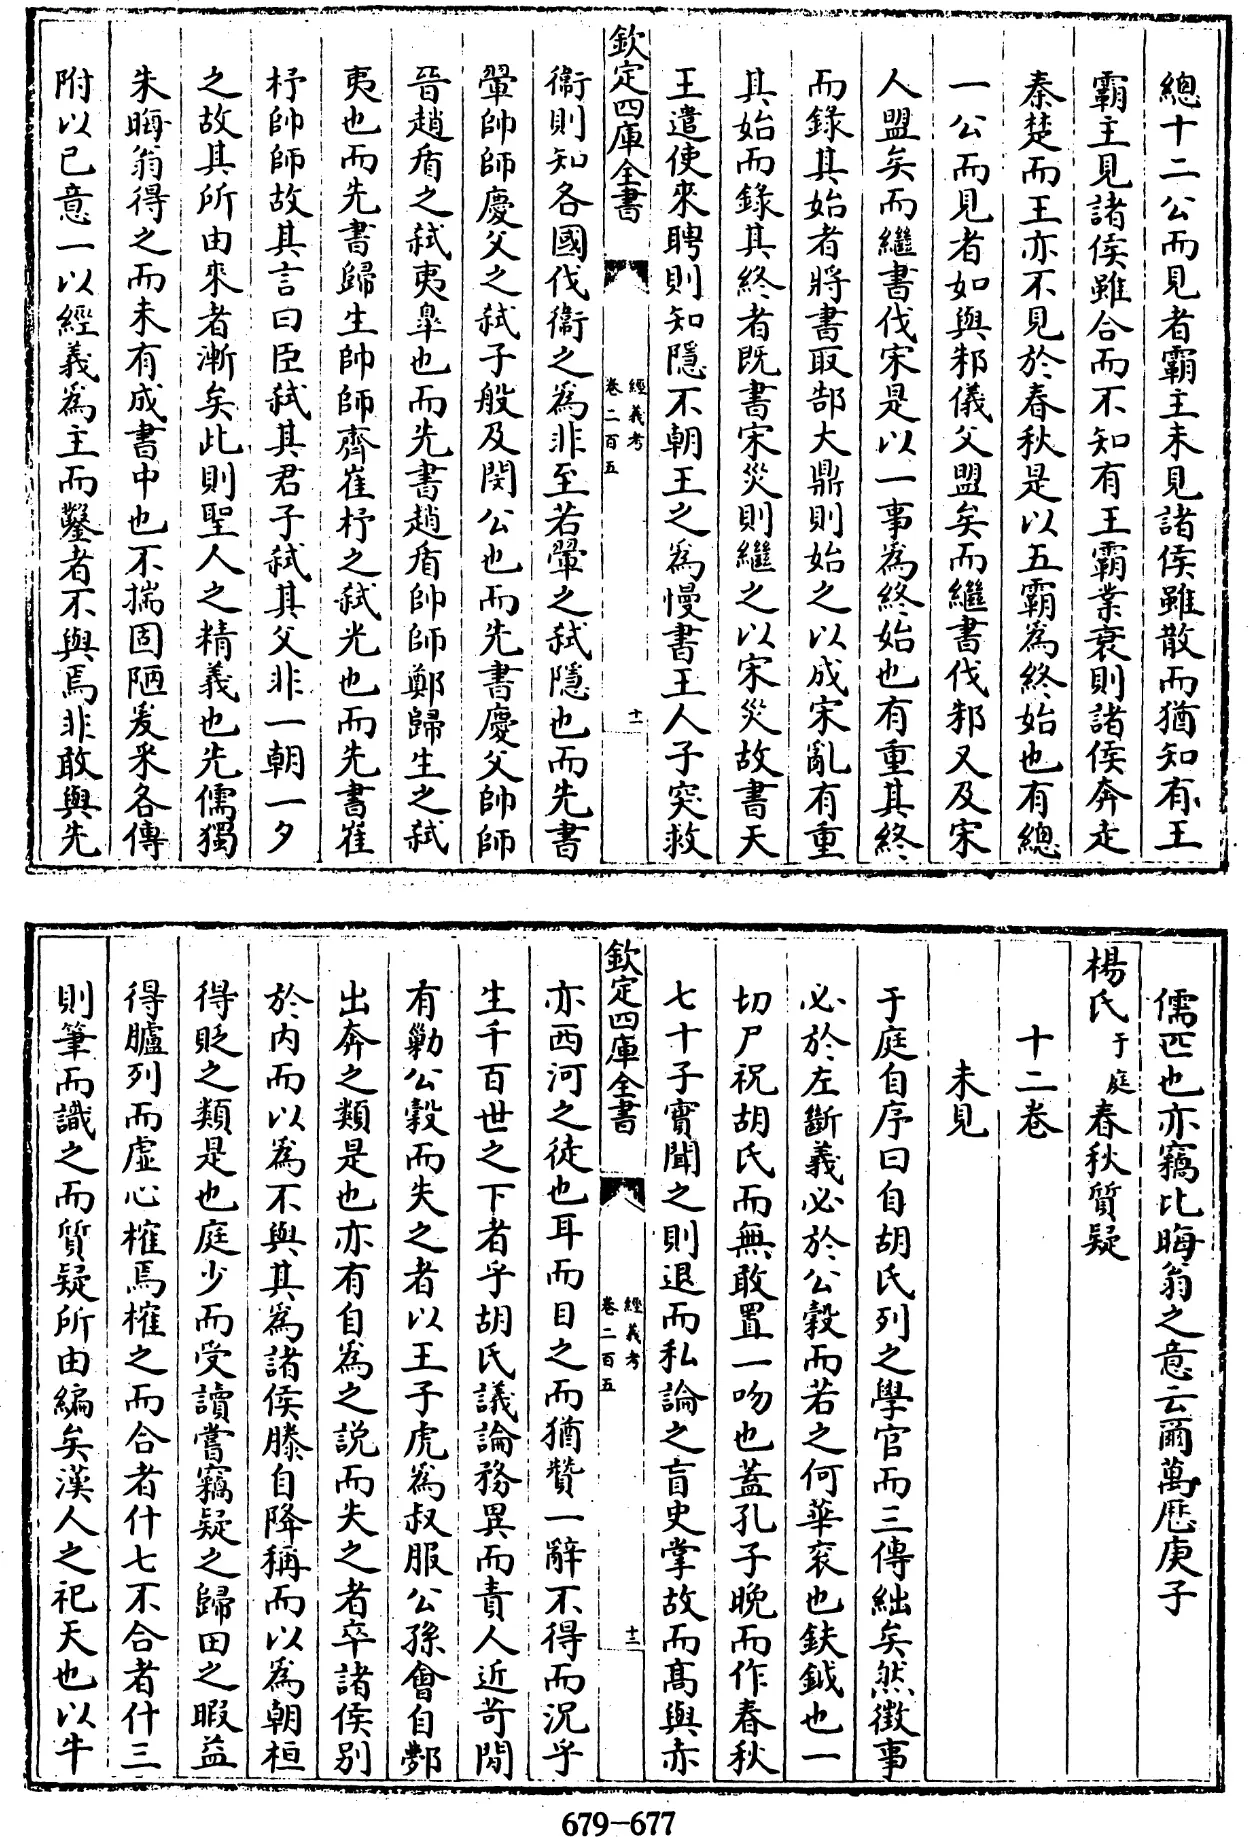 總十二公而見者霸主未見諸侯雖散而猶知有王
霸主見諸侯雖合而不知有王霸業衰則諸侯奔走
秦楚而王亦不見於春秋是以五霸為終始也有總
一公而見者如與邾儀父盟矣而繼書伐邾又及宋
人盟矣而繼書伐宋是以一事為終始也有重其終
而錄其始者將書取郜大鼎則始之以成宋亂有重
其始而錄其終者既書宋災則繼之以宋災故書天
王遣使來聘則知隱不朝王之為慢書王人子突救
欽定四庫全書
經義考
卷二百五
十一
衞則知各國伐衞之為非至若翬之弑隱也而先書
翬帥師慶父之弑子般及閔公也而先書慶父帥師
晉趙盾之弑夷臯也而先書趙盾帥師鄭歸生之弑
夷也而先書歸生帥師齊崔杼之弑光也而先書崔
杼帥師故其言曰臣弑其君子弑其父非一朝一夕
之故其所由來者漸矣此則聖人之精義也先儒獨
朱晦翁得之而未有成書中也不揣固陋爰采各傳
附以己意一以經義為主而鑿者不與焉非敢與先
儒匹也亦竊比晦翁之意云爾萬厯庚子
楊氏于庭春秋質疑
十二卷
未見
于庭自序曰自胡氏列之學官而三傳絀矣然徵事
必於左斷義必於公穀而若之何華袞也鈇鉞也一
切尸祝胡氏而無敢置一吻也蓋孔子晚而作春秋
七十子實聞之則退而私論之盲史掌故而高與赤
欽定四庫全書
經義考
卷二百五
十二
亦西河之徒也耳而目之而猶贊一辭不得而況乎
生千百世之下者乎胡氏議論務異而責人近苛間
有勦公穀而失之者以王子虎為叔服公孫會自鄸
出奔之類是也亦有自為之説而失之者卒諸侯別
於內而以為不與其為諸侯滕自降稱而以為朝桓
得貶之類是也庭少而受讀嘗竊疑之歸田之暇益
得臚列而虛心榷焉榷之而合者什七不合者什三
則筆而識之而質疑所由編矣漢人之祀天也以牛
679-677